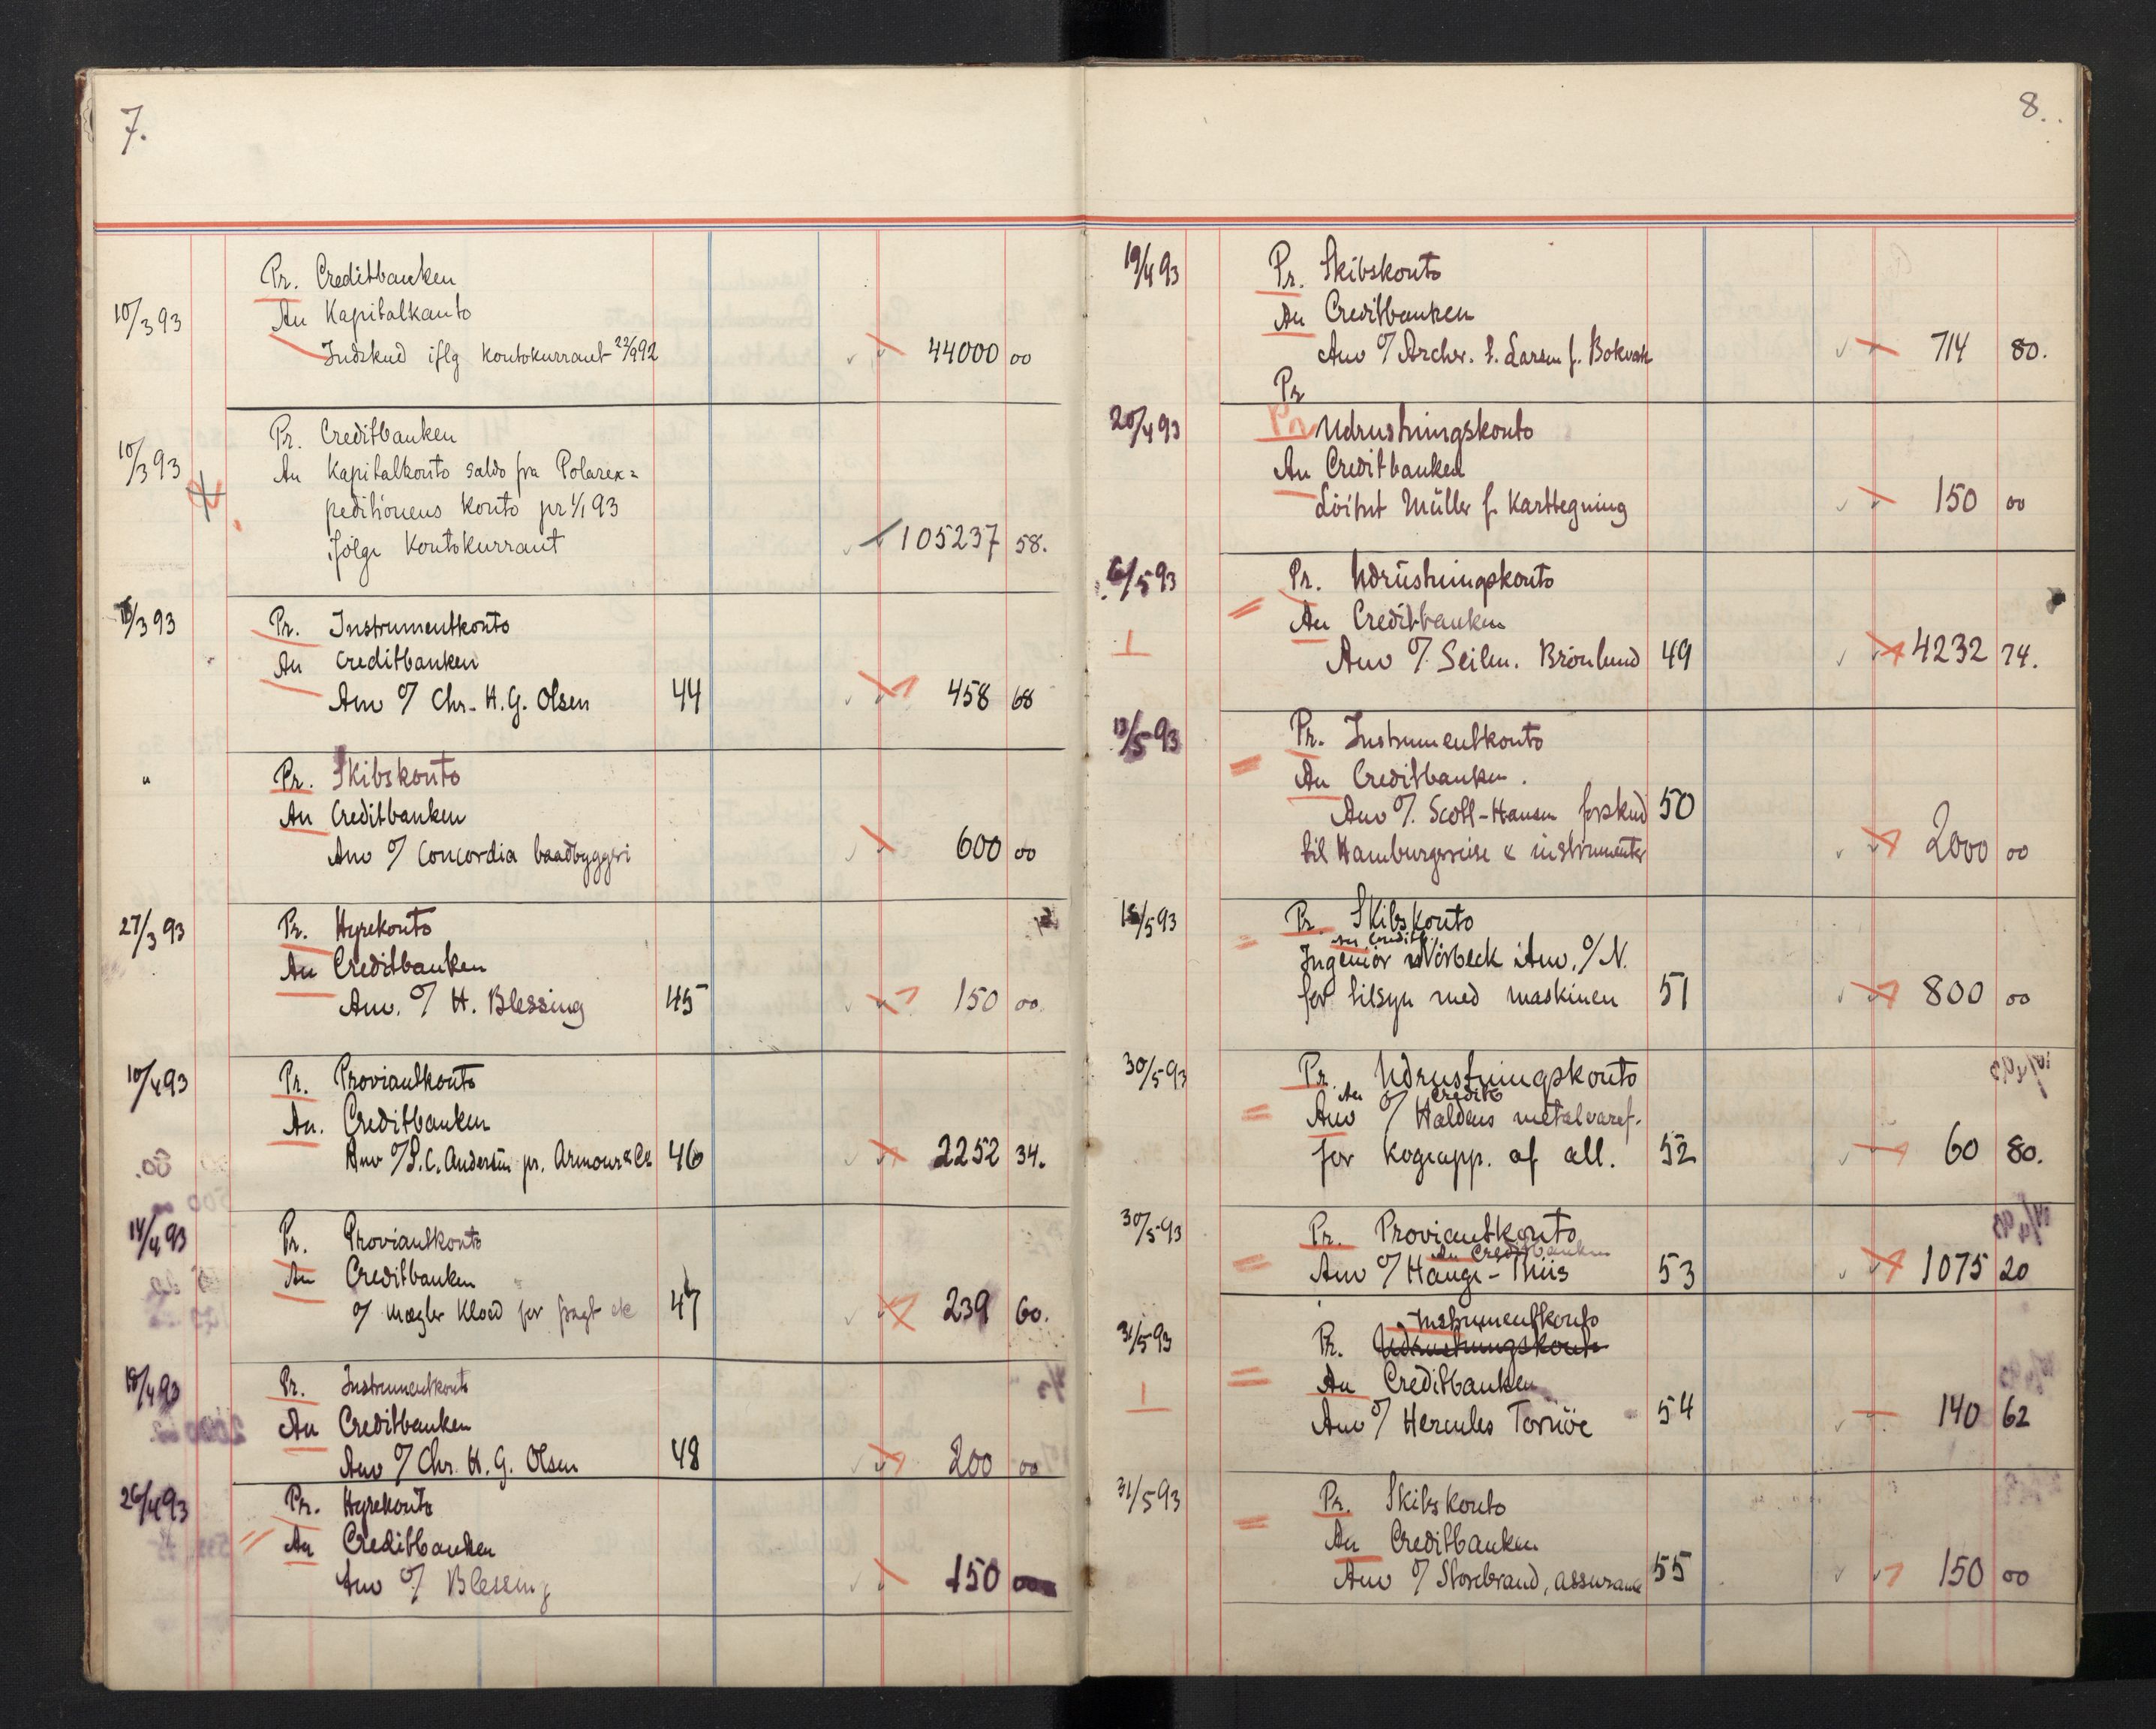 7.
Pr. Creditbanken
10/3 93 An Kapitalkonto
Indskud iflg kontokurrant 22/9 92 44000 00
Pr. Creditbanken
10/3 93 An Kapitalkonto saldo fra Polarex=
peditionens konto pr 1/1 93
ifølge Kontokurrant 105237 58.
/3 93 Pr. Instrumentkonto
An Creditbanken
Anv o/ Chr. H. G. Olsen 44 458 68
" Pr. Skibskonto
An Creditbanken
Anv o/ Concordia baadbyggeri 600 00
27/3 93 Pr. Hyrekonto
An Creditbanken
Anv. o/ H. Blessing 45 150 00
10/4 93 Pr. Proviantkonto
An. Creditbanken
Anv o/ L. C. Andersen pr. Armour & Co 46 2252 34.
14/4 93 Pr. Proviantkonto
An Creditbanken
o/ mægler Kloed for fragt etc 47 239 60.
18/4 93 Pr. Instrumentkonto
An Creditbanken
Anv o/ Chr. H. G. Olsen 48 200 00
26/4 93 Pr. Hyrekonto
An Creditbanken
Anv o/ Blessing 150 00
8.
19/4 93 Pr. Skibskonto
An Creditbanken
Anv o/ Archer. f. Larsen f. 714 80.
Pr
20/4 93 Pr Udrustningskonto
An Creditbanken
Löitnt Müller f. Karttegning 150 00
6/5 93 Pr. Udrustningskonto
An Creditbanken
Anv o/. Seilm. Brönlund 49 4232 74.
13/5 93 Pr. Instrumentkonto
An Creditbanken.
Anv o/. Scott-Hansen forskud 50
til Hamburgerreise & instrumenter 2000 00
15/5 93 Pr. Skibskonto
An Creditb
Ingeniör Nörbeck Anv. o/ N.
for tilsyn med maskinen 51 800 00
30/5 93 Pr. Udrustningskonto
An Creditb
Anv o/ Haldens metalvaref.
for kogeapp. af all. 52 60 80.
30/5 93 Pr. Proviantkonto
An Creditbanken
Anv o/ Hauge-Thiis 53 1075 20
Instrumentkonto
31/5 93 Pr. Udrustningskonto
An Creditbanken
Anv o/ Hercules Tornöe 54 140 62
31/5 93 Pr. Skibskonto
An Creditbanken
Anv o/ Storebrand, assurance 55 150 00